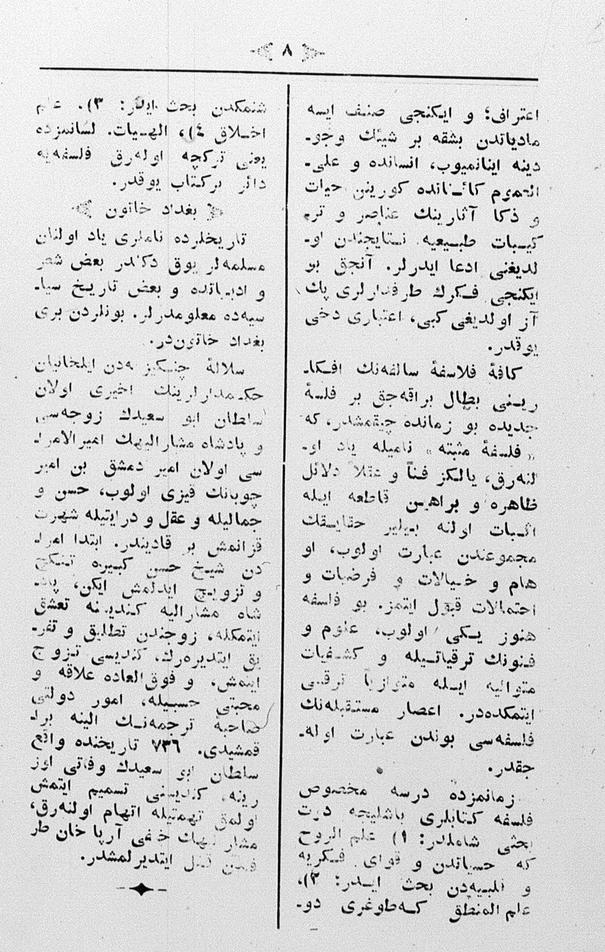 ٨
اعتراف؛ و ایكنجی صنف ایسه
مادیاتدن بشقه بر شیئك وجو-
دینه اینانمیوب، انسانده و علی-
العموم كائناتده كورینن حیات
و ذكا آثارینك عناصر و تر-
كیبات طبیعیه نتایجندن او-
لدیغنی ادعا ایدرلر. آنجق بو
ایكنجی فكرك طرفدارلری پك
آز اولدیغی كبی، اعتباری دخی
یوقدر.
كافۀ فلاسفۀ سالفه‌نك افكا-
رینی بطال براقه‌جق بر فلسفۀ
جدیده بو زمانده چیقمشدر، كه
«فلسفۀ مثبته» نامیله یاد او-
لنه‌رق، یالكز فناً و عقلاً دلائل
ظاهره و براهین قاطعه ایله
اثبات اولنه بیلیر حقایقك
مجموعندن عبارت اولوب، او
هام و خیالات و فرضیات و
احتمالات قبول ایتمز. بو فلسفه
هنوز یكی اولوب، علوم و
فنونك ترقیاتیله و كشفیات
متوالیه ایله متوازیاً ترقی
ایتمكده‌در. اعصار مستقبله‌نك
فلسفه‌سی بوندن عبارت اوله-
جقدر.
زمانمزده درسه مخصوص
فلسفه كتابلری باشلیجه درت
بحثی شاملدر: ١) علم الروح
كه حسیاتدن و قوای فكریه
و قلبیه‌دن بحث ایدر: ٢)،
علم المنطق كه طوغری دو-
شنمكدن بحث ایلر: ٣)، علم
اخلاق ٤)، الهیات. لسانمزده
یعنی تركچه اوله‌رق فلسفه‌یه
دائر بر كتاب یوقدر.
بغداد خاتون
تاریخلرده ناملری یاد اولنان
مسلمه‌لر یوق دكلدر بعض شعر
و ادبیاتده و بعض تاریخ سیا-
سیه‌ده معلومدرلر. بونلردن بری
بغداد خاتون‌در.
سلالۀ چنكیزیه‌دن ایلخانیان
حكمدارلرینك اخیری اولان
سلطان ابو سعیدك زوجه‌سی
و پادشاه مشارالیهك امیرالامرا-
سی اولان امیر دمشق بن امیر
چوبانك قیزی اولوب، حسن و
جمالیله و عقل و درایتیله شهرت
قزانمش بر قادیندر. ابتدا امرا-
دن شیخ حسن كبیره تنكیح
و تزویج ایدلمش ایكن، پاد-
شاه مشارالیه كندینه تعشق
ایتمكله، زوجندن تطلیق و تفر-
یق ایتدیره‌رك، كندیسی تزوج
ایتمش، و فوق‌العاده علاقه و
محبتی حسبیله، امور دولتی
صاحبۀ ترجمه‌نك الینه برا-
قمشیدی. ٧٣٦ تاریخنده واقع
سلطان ابو سعیدك وفاتی اوز
رینه، كندیسنی تسمیم ایتمش
اولمق تهمتیله اتهام اولنه‌رق،
مشارالیهك خلفی آرپا خان طر
فندن قتل ایتدیرلمشدر.